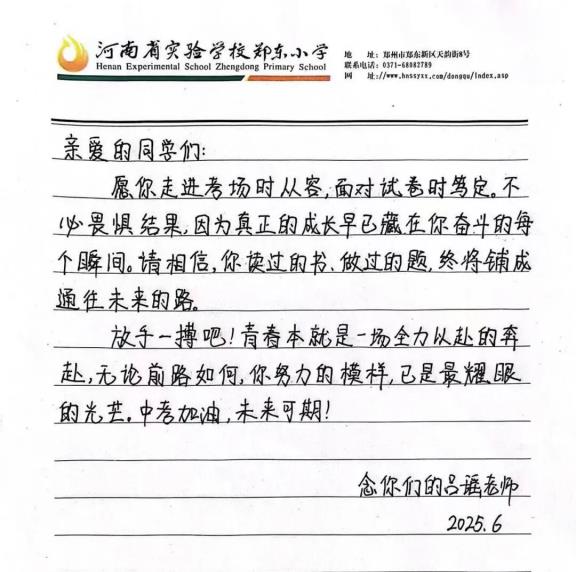 河南省实验学校郑东小学
Henan Experimental School Zhengdong Primary School
地 址：郑州市郑东新区天韵街8号
联系电话：0371-68082789
网 址：//www.hnssyxx.com/dongqu/index.asp
亲爱的同学们：
愿你走进考场时从容，面对试卷时笃定。不
必畏惧结果，因为真正的成长早已藏在你奋斗的每
个瞬间。请相信，你读过的书、做过的题，终将铺成
通往未来的路。
放手一搏吧！青春本就是一场全力以赴的奔
赴，无论前路如何，你努力的模样，已是最耀眼
的光芒。中考加油，未来可期！
念你们的吕谣老师
2025.6